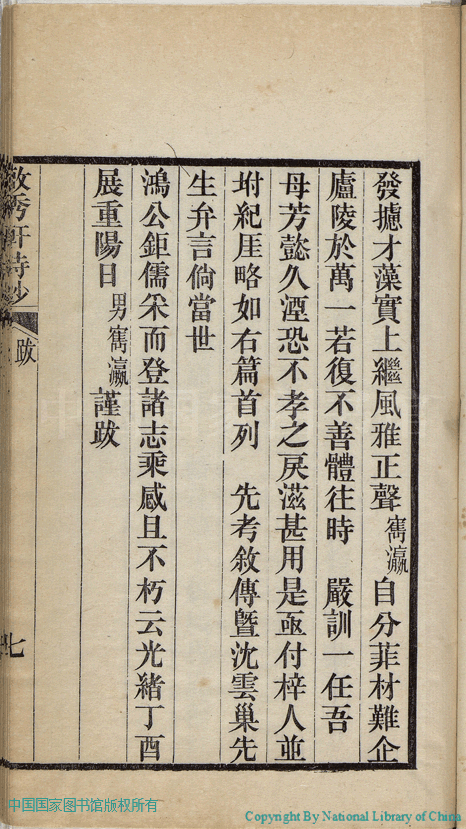 發攄才藻實上繼風雅正聲雋瀛自分菲材難企
廬陵於萬一若復不善體往時　嚴訓一任吾
母芳懿久湮恐不孝之戾滋甚用是亟付梓人並
坿紀厓略如右篇首列　先考敘傳暨沈雲巢先
生弁言倘當世
鴻公鉅儒采而登諸志乘感且不朽云光緒丁酉
展重陽日男雋瀛謹跋
秀軒詩鈔　跋　七
中国国家图书馆版权所有
Copyright By National Library of China